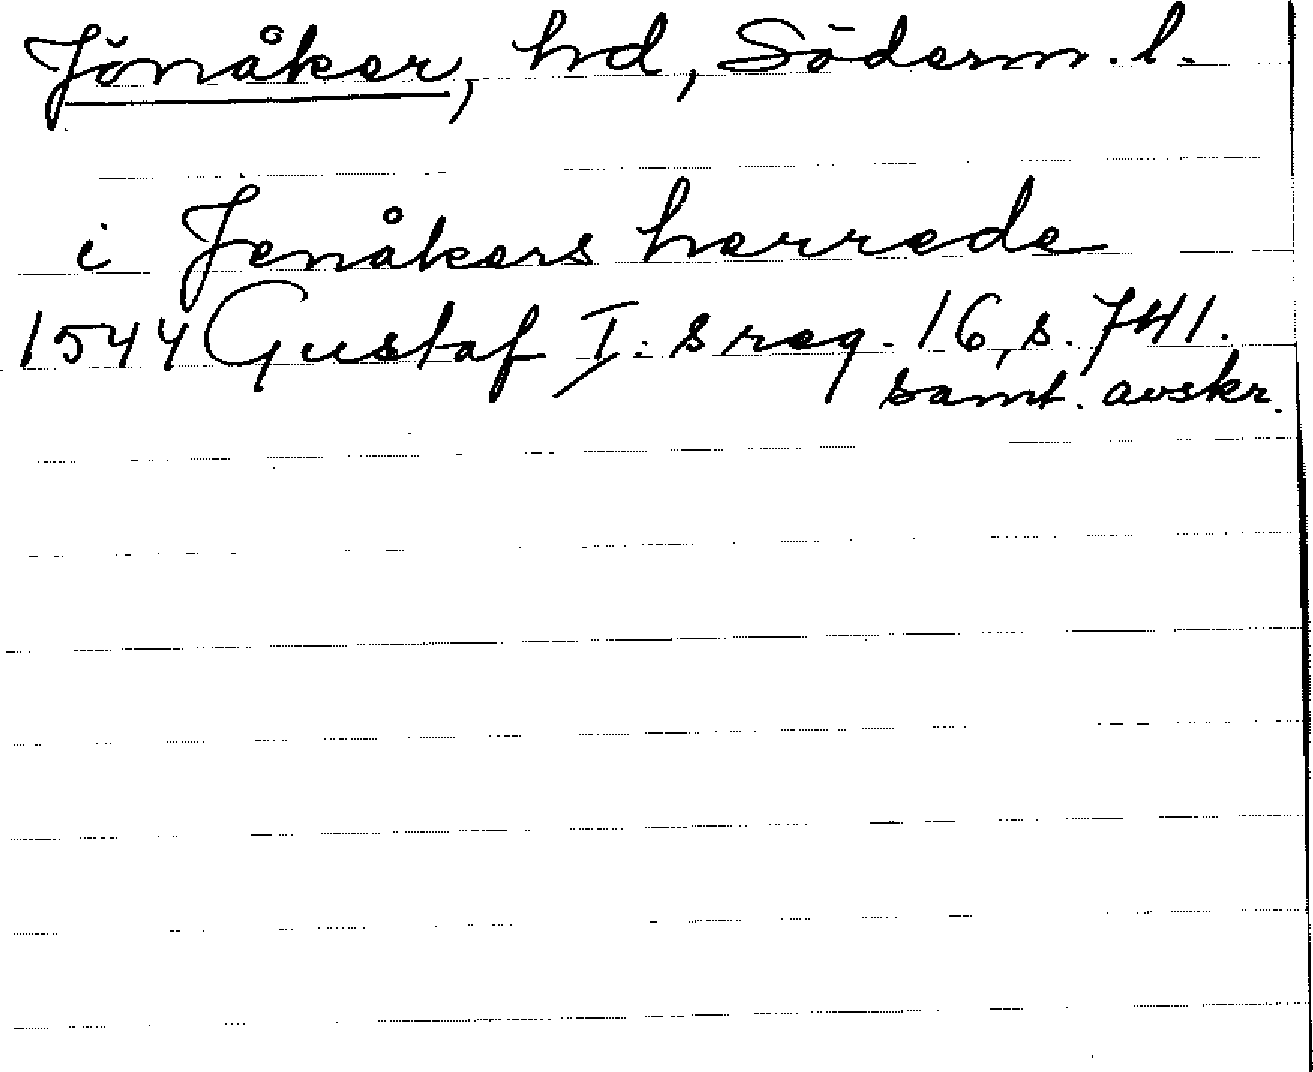 Jönåker, hd, Söderm. l.
i Jenåkers herrede
1544 Gustaf I:s reg. 16, s. 741.
samt. avskr.